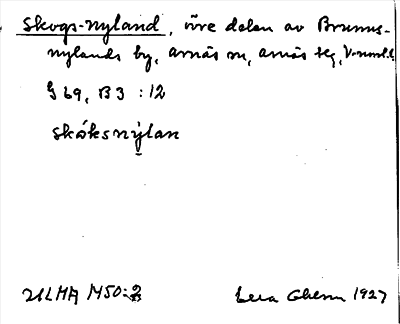 Skogs-nyland, övre delen av Brunns-
nylands by, Arnäs sn, Arnäs tlg, V-norrl. l.
G 69, B3 : 12
skåksnỳlan
ULMA M50:2 Lena Ghenn 1927